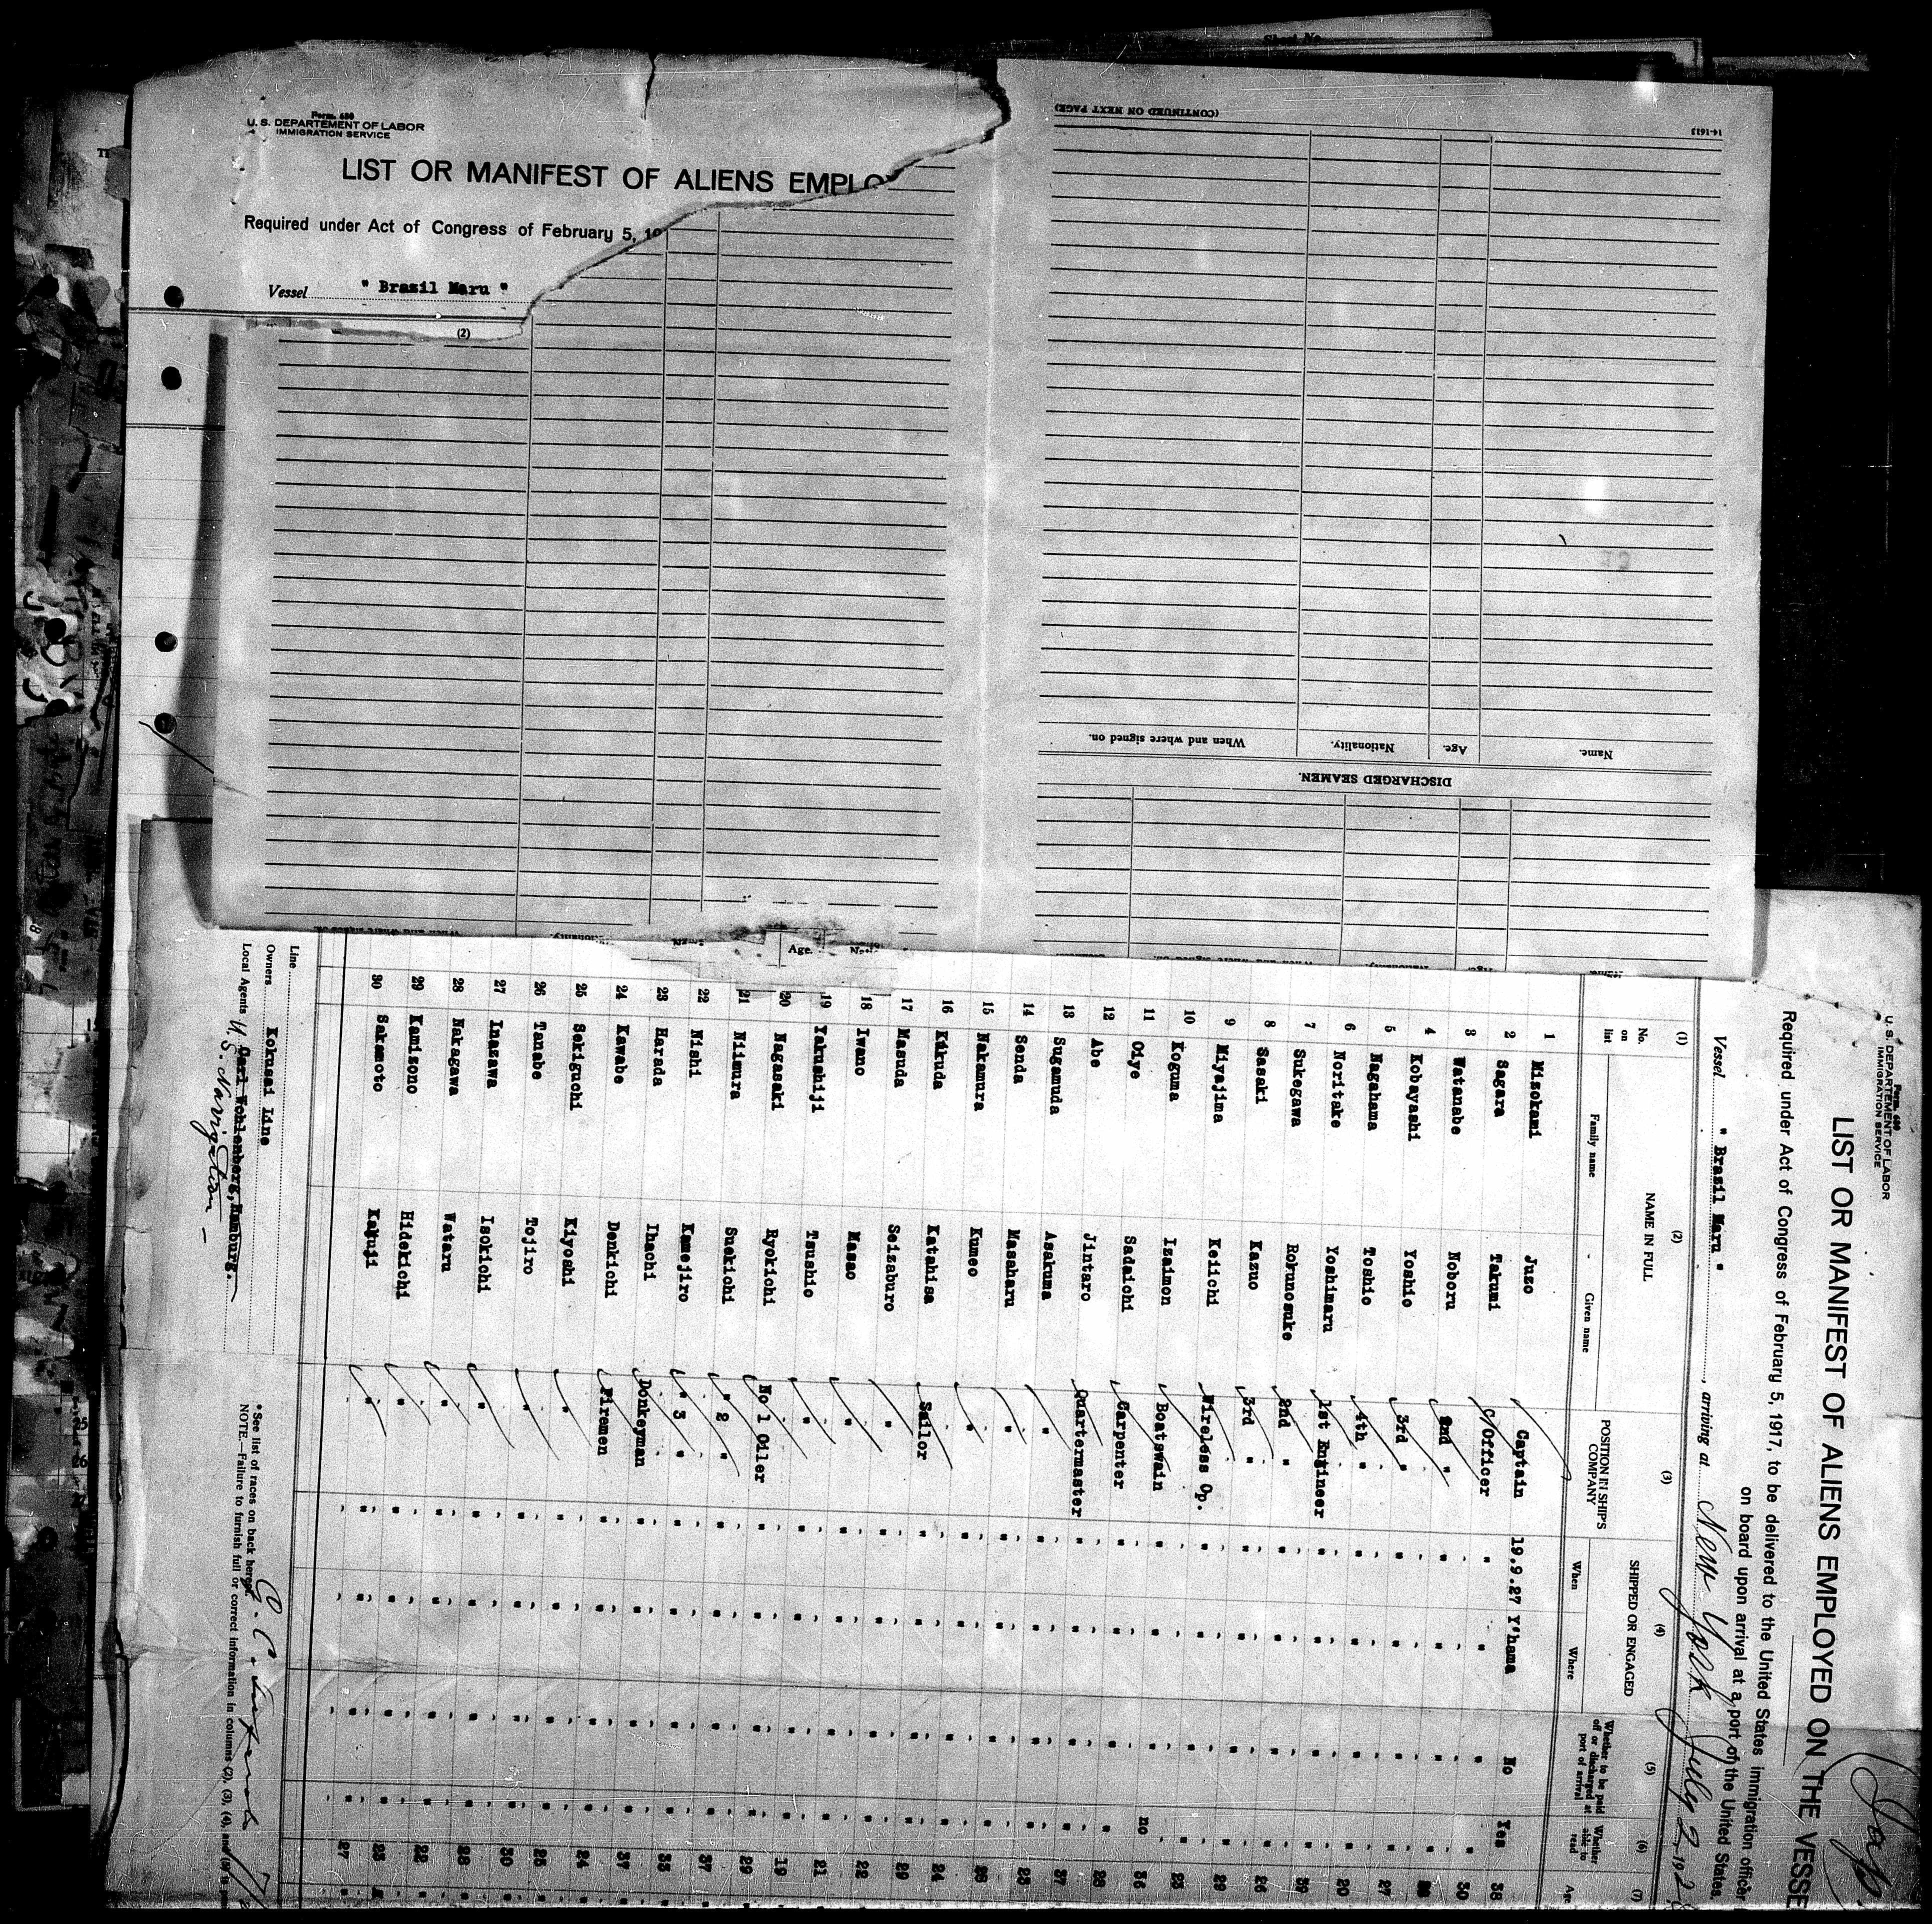 Form 680
U. S. DEPARTMENT OF LABOR
IMMIGRATION SERVICE
LIST OR MANIFEST OF ALIENS EMPLO
Required under Act of Congress of February 5, 19
Vessel " Brazil Maru "
(2)
(CONTINUED ON NEXT PAGE)
14-1613
When and where signed on. Nationality. Age. Name.
DISCHARGED SEAMEN.
Age.
Form 680
U. S. DEPARTMENT OF LABOR
IMMIGRATION SERVICE
LIST OR MANIFEST OF ALIENS EMPLOYED ON THE VESSE
Required under Act of Congress of February 5, 1917, to be delivered to the United States immigration officer
on board upon arrival at a port of the United States.
Vessel " Brazil Maru ", arriving at New York July 2, 192
(1) (2) (3) (4) (5) (6) (7)
No. on list NAME IN FULL POSITION IN SHIP'S COMPANY SHIPPED OR ENGAGED Whether to be paid off or discharged at port of arrival Whether able to read Age
Family name Given name When Where
1 Misokami Juzo Captain 19.9.27 Y'hama No Yes 38
2 Sagara Takumi C/Officer " " " " 30
3 Watanabe Noboru 2nd " " " " "
4 Kobayashi Yoshio 3rd " " " " " 27
5 Nagahama Toshio 4th " " " " " 20
6 Noritake Yoshimaru 1st Engineer " " " " 39
7 Sukegawa Rokunosuke 2nd " " " " " 26
8 Sasaki Kazuo 3rd " " " " " 29
9 Miyajima Keiichi Wireless Op. " " " "
10 Koguma Izaimon Boatswain " " " no 36
11 Oiye Sadaichi Carpenter " " " "
12 Abe Jintaro Quartermaster " " " " 37
13 Sugamuda Asakuma " " " " "
14 Senda Masaharu " " " " "
15 Nakamura Kumeo " " " " " 24
16 Kikuda Katahisa Sailor " " " " 29
17 Masuda Seizaburo " " " " " 22
18 Iwano Masao " " " " " 21
19 Yakushiji Tsushio " " " " " 19
20 Nagasaki Ryokichi No 1 Oiler " " " " 29
21 Niimura Suekichi " 2 " " " " " 37
22 Nishi Kamejiro " 3 " " " " "
23 Harada Ihachi Donkeyman " " " " 37
24 Kawabe Denkichi Firemen " " " " 24
25 Sekiguchi Kiyoshi " " " " " 25
26 Tanabe Tojiro " " " " " 30
27 Inazawa Isokichi " " " " " 28
28 Nakagawa Wataru " " " " "
29 Kamizono Hidekichi " " " " "
30 Sakamoto Kakuji " " " " " 27
Line
Owners Kokusai Line
Local Agents Carl Wohlenberg, Hamburg.
U. S. Navigation -
* See list of races on back hereof.
NOTE.—Failure to furnish full or correct information in columns (2), (3), (4), and